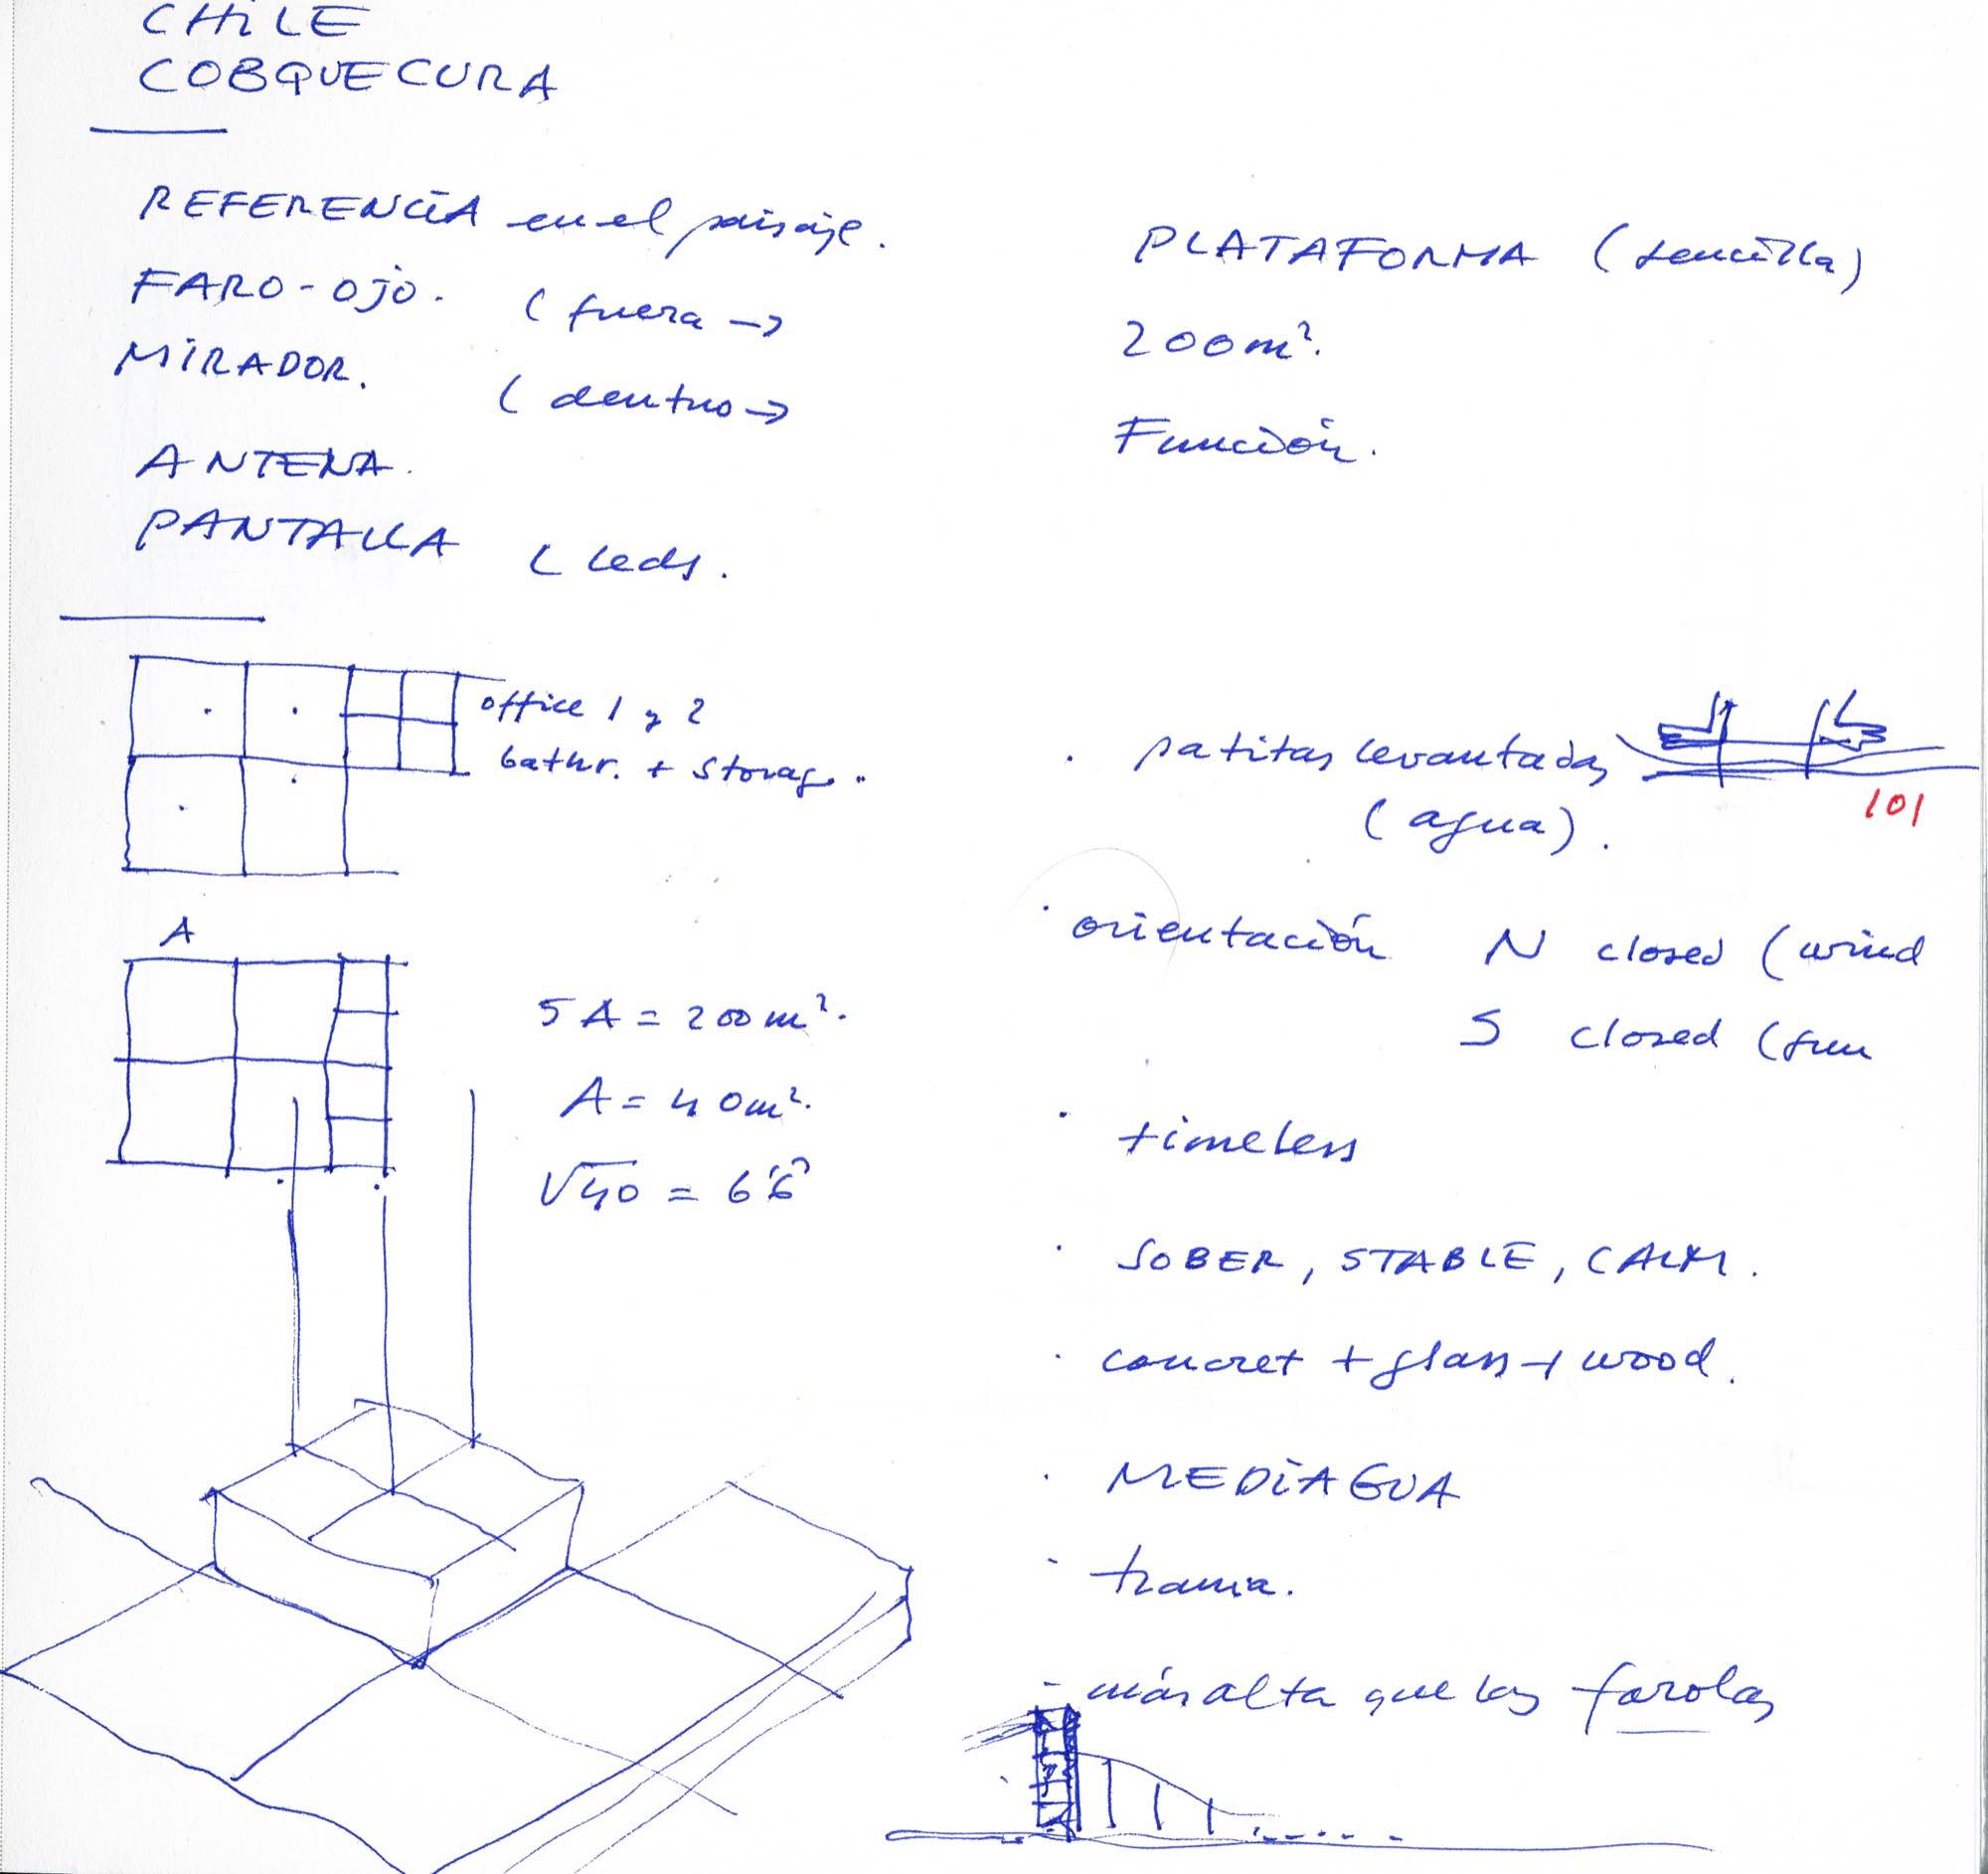 CHiLE
COBQUECURA
REFERENCIA en el paisaje.
FARO-OJO. (fuera →
MiRADOR. (dentro →
ANTENA.
PANTALLA (leds.
PLATAFORMA (sencilla)
200m².
Función.
office 1 y 2
bathr. + storage.
A
5A = 200m².
A = 40m².
√40 = 6'6
· patitas levantadas
(agua).
101
· orientación N closed (wind
S closed (sun
· timeless
· SOBER, STABLE, CALM.
· concret + glass + wood.
· MEDiAGUA
- trama.
- más alta que las farolas